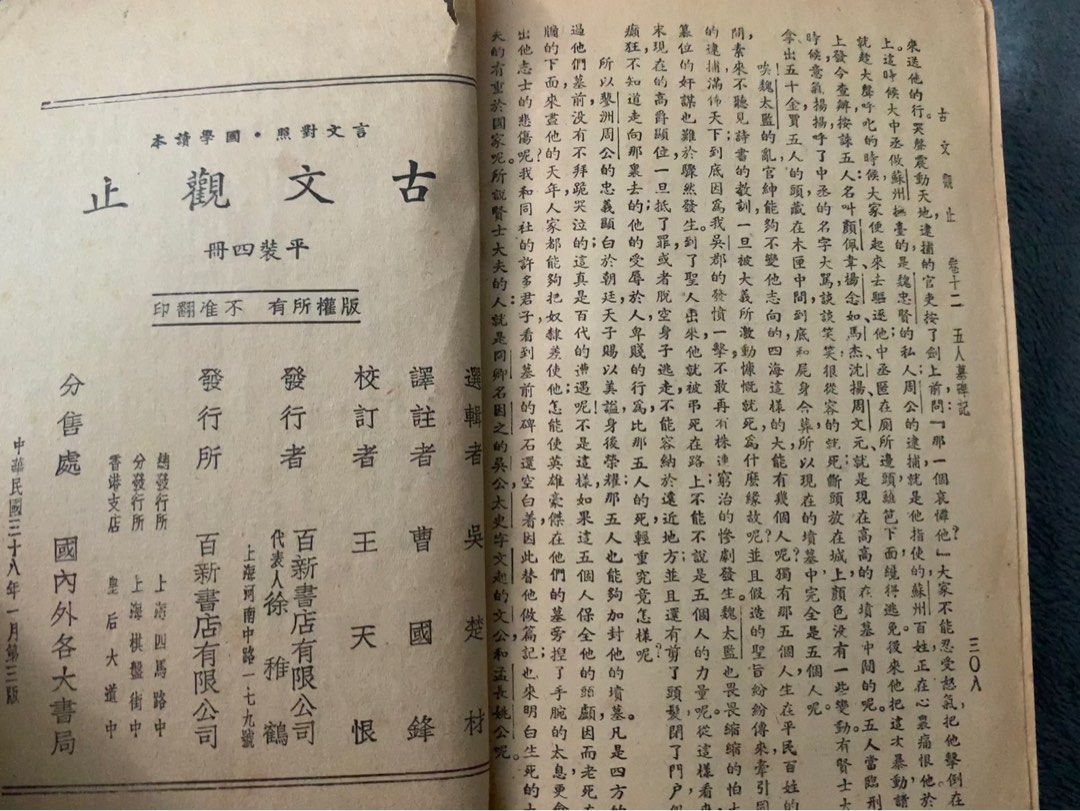 古文觀止　卷十二　五人墓碑記　三〇八
來送他的行哭聲震動天地逮捕的官吏按了劍上前問『那一個哀憐他』？大家不能忍受怒氣把他擊倒在
上。這時候大中丞做蘇州撫臺的是魏忠賢的私人周公的逮捕就是他指使的；蘇州百姓正在心裏痛恨他於
就趁大聲呼叱的時候大家便起來去驅逐他中丞匿在廁所邊頭籬笆下面纔得逃免後來他把這次暴動請
上發令查辦按誅五人名叫顏佩韋、楊念如、馬杰、沈揚、周文元就是現在高高的在墳墓中間的呢五人當臨刑
時候意氣揚揚呼了中丞的名字大罵談談笑笑很從容的就死斷頭放在城上顏色沒有一些變動有賢士大
拿出五十金買五人的頭藏在木匣中間到底和屍身合葬所以現在的墳墓中完全是五個人呢
唉！魏太監的亂官紳能夠不變他志向的四海這樣的大能有幾個人？呢獨有那五個人生在平民百姓的
間素來不聽見詩書的教訓一旦被大義所激動慷慨就死爲什麼緣故呢？並且假造的聖旨紛紛傳來牽引
的逮捕滿佈天下；到底因爲我吳郡的發憤一擊不敢再有株連窮治的慘劇發生魏太監也畏畏縮縮的怕
篡位的奸謀也難於驟然發生。到了聖人出來他就被弔死在路上不能不說是五個人的力量呢從這樣看來
末現在的高爵顯位一旦抵了罪或者脫空身子逃走不能容納於遠近地方；並且還有剪了頭髮閉了門戶
癲狂不知道走向那裏去的他的受辱於人卑賤的行爲比那五人的死輕重究竟怎樣呢？
所以蓼洲周公的忠義顯白於朝廷天子賜以美謚身後榮耀；那五人也能夠加封他的墳墓。凡是四方的
過他們墓前沒有不拜跪哭泣的這真是百代的遭遇呢！不是這樣如果這五個人保全他的頭顱因而老死
牖的下面來盡他的天年人家都能夠把奴隸差使他怎能使英雄豪傑在他們的墓旁捏了手腕的太息更
出他志士的悲傷呢？我和同社的許多君子看到墓前的碑石還空白着因此替他做篇記也來明白生死的
夫的有重於國家呢。所說賢士大夫的人就是冏卿名因之的吳公太史字文起的文公和孟長姚公呢。
言文對照・國學讀本
古文觀止
平裝四冊
版權所有　不准翻印
選輯者　吳楚材
譯註者　曹國鋒
校訂者　王天恨
發行者　百新書店有限公司
代表人徐稚鶴
上海河南中路一七九號
發行所　百新書店有限公司
總發行所　上海四馬路中
分發行所　上海棋盤街中
香港支店　皇后大道中
分售處　國內外各大書局
中華民國三十八年一月第三版